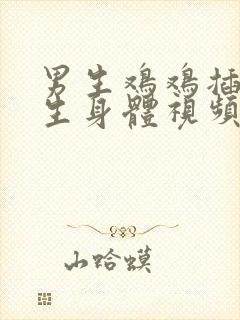 男生鸡鸡插
生身體視頻
山蛤蟆